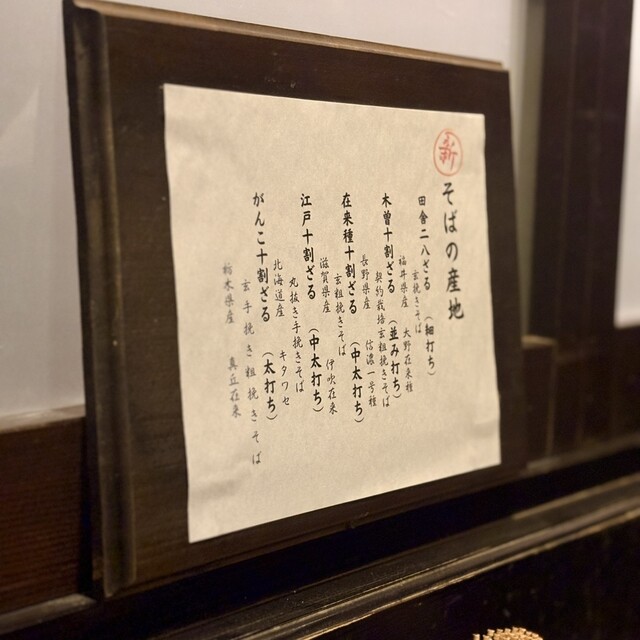 新
そばの産地
田舎二八ざる（細打ち）
玄挽きそば
福井県産 大野在来種
木曽十割ざる（並み打ち）
契約栽培玄粗挽きそば
長野県産 信濃一号種
在来種十割ざる（中太打ち）
玄粗挽きそば
滋賀県産 伊吹在来
江戸十割ざる（中太打ち）
丸抜き手挽きそば
北海道産 キタワセ
がんこ十割ざる（太打ち）
玄手挽き粗挽きそば
栃木県産 真丘在来